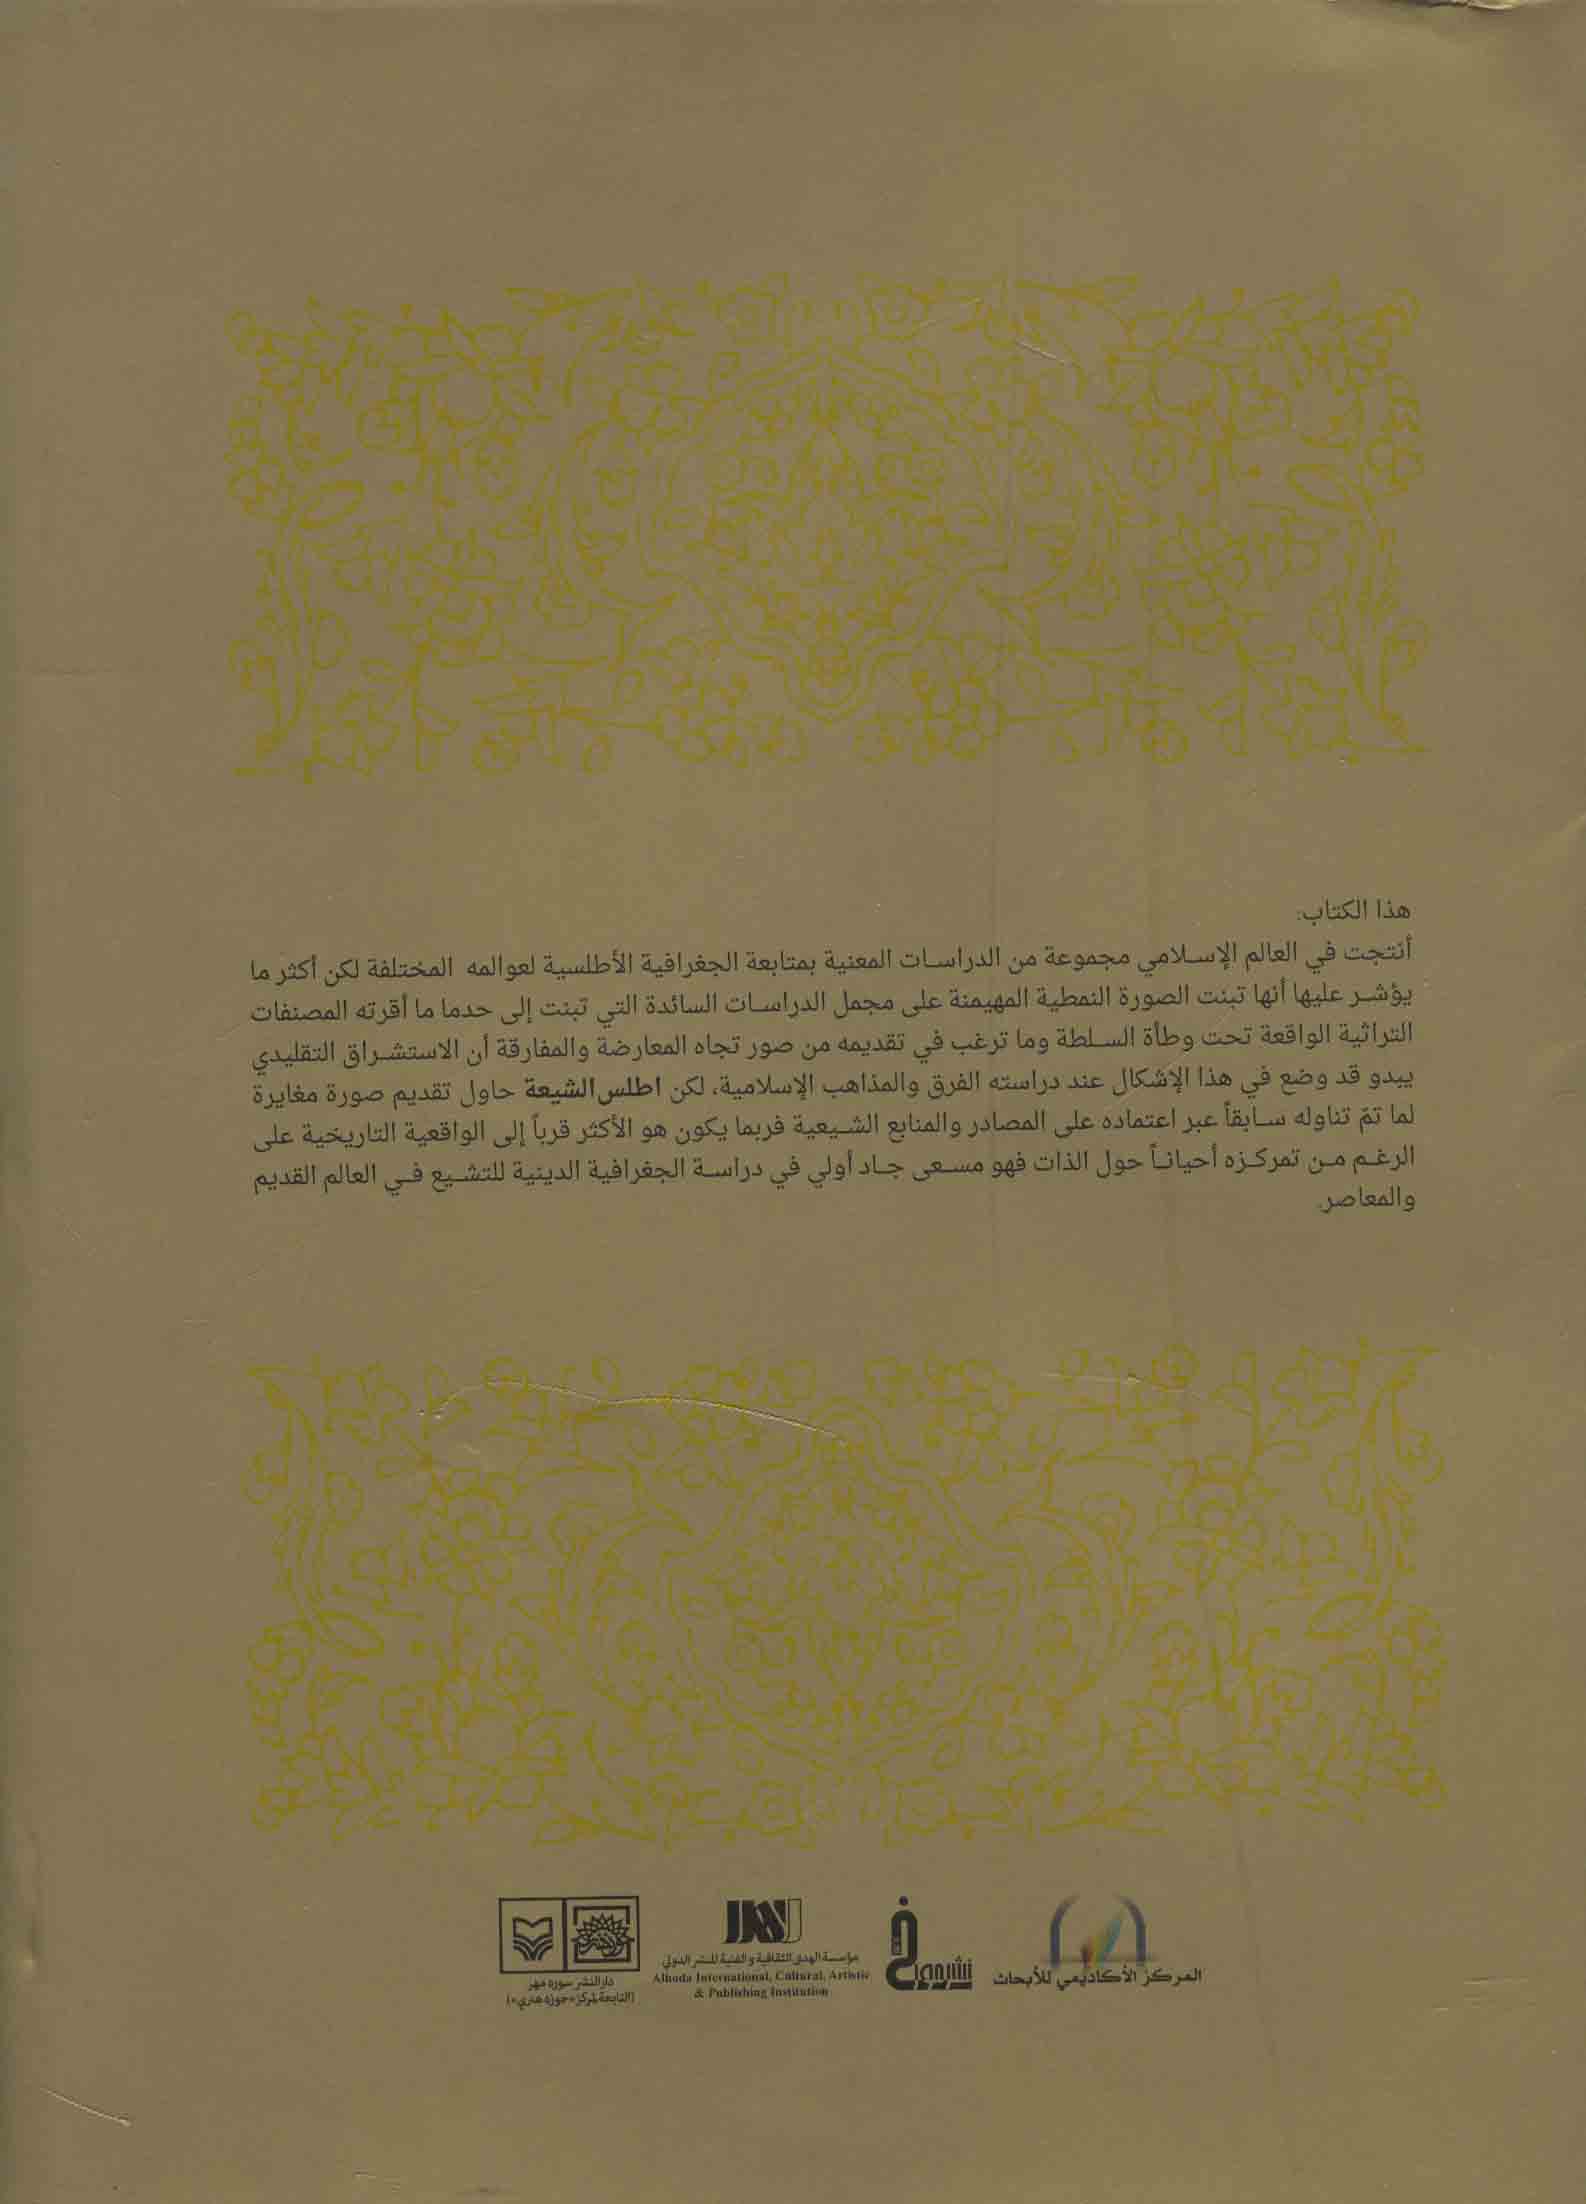 هذا الكتاب:
أنتجت في العالم الإسلامي مجموعة من الدراسات المعنية بمتابعة الجغرافية الأطلسية لعوالمه المختلفة لكن أكثر ما
يؤشر عليها أنها تبنت الصورة النمطية المهيمنة على مجمل الدراسات السائدة التي تبنت إلى حدما ما أقرته المصنفات
التراثية الواقعة تحت وطأة السلطة وما ترغب في تقديمه من صور تجاه المعارضة والمفارقة أن الاستشراق التقليدي
يبدو قد وضع في هذا الإشكال عند دراسته الفرق والمذاهب الإسلامية، لكن اطلس الشيعة حاول تقديم صورة مغايرة
لما تمّ تناوله سابقاً عبر اعتماده على المصادر والمنابع الشيعية فربما يكون هو الأكثر قرباً إلى الواقعية التاريخية على
الرغم من تمركزه أحياناً حول الذات فهو مسعى جاد أولي في دراسة الجغرافية الدينية للتشيع في العالم القديم
والمعاصر.
المركز الأكاديمي للأبحاث
نشر مورخ
مؤسسة الهدى الثقافية و الفنية للنشر الدولي
Alhoda International, Cultural, Artistic
& Publishing Institution
دار النشر سوره مهر
(التابعة لمركز «حوزه هنري»)